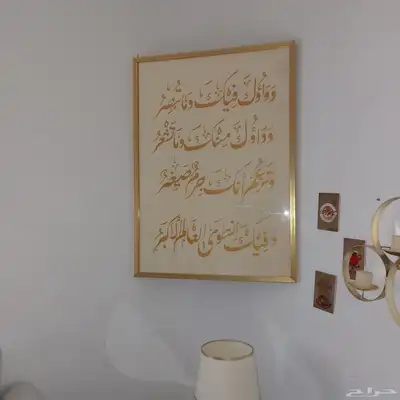 دَوَاؤُكَ فِيكَ وَمَا تُبْصِرُ
وَدَاؤُكَ مِنْكَ وَمَا تَشْعُرُ
وَتَزْعُمُ انَّكَ جِرْمٌ صَغِيرٌ
وَفِيكَ انْطَوَى العَالَمُ الأَكْبَرُ
حراج